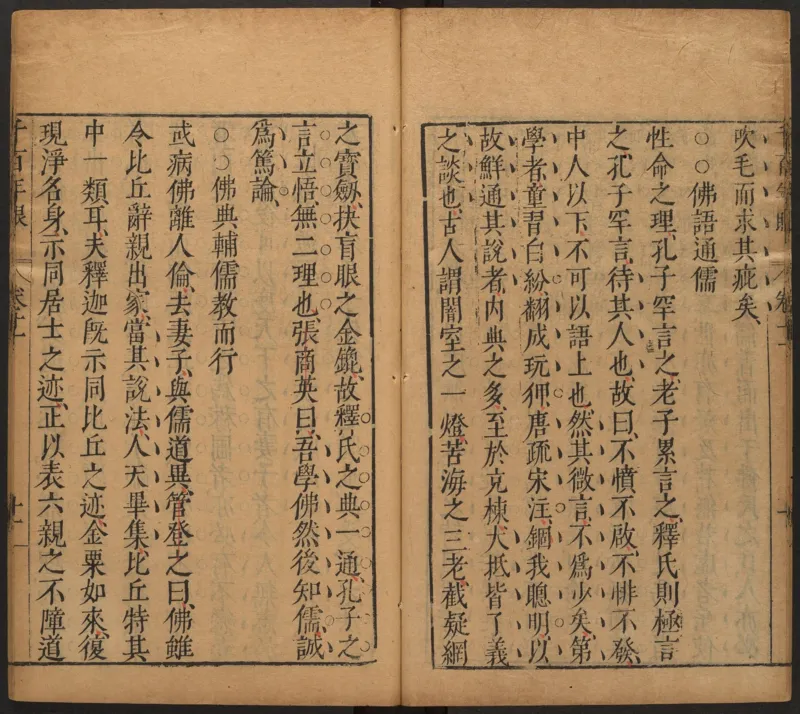 吹毛而求其疵矣
○○佛語通儒
性命之理孔子罕言之老子累言之釋氏則極言
之孔子罕言待其人也故曰不憤不啟不悱不發
中人以下不可以語上也然其微言不爲少矣第
學者童習白紛翻成玩狎唐疏宋注錮我聰明以
故鮮通其說者內典之多至於充棟大抵皆了義
之談也古人謂闇室之一燈苦海之三老截疑網
之寶劔抉盲眼之金鎞故釋氏之典一通孔子之
言立悟無二理也張商英曰吾學佛然後知儒誠
爲篤論
○○佛典輔儒教而行
或病佛離人倫去妻子與儒道異管登之曰佛雖
令比丘辭親出家當其說法人天畢集比丘特其
中一類耳夫釋迦旣示同比丘之迹金粟如來復
現淨名身示同居士之迹正以表六親之不障道
千百年眼
卷十一
十一